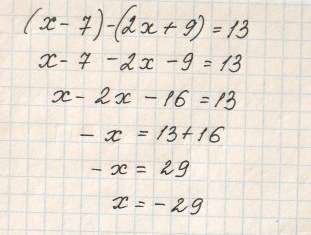 (x - 7) - (2x + 9) = 13
x - 7 - 2x - 9 = 13
x - 2x - 16 = 13
- x = 13 + 16
- x = 29
x = - 29